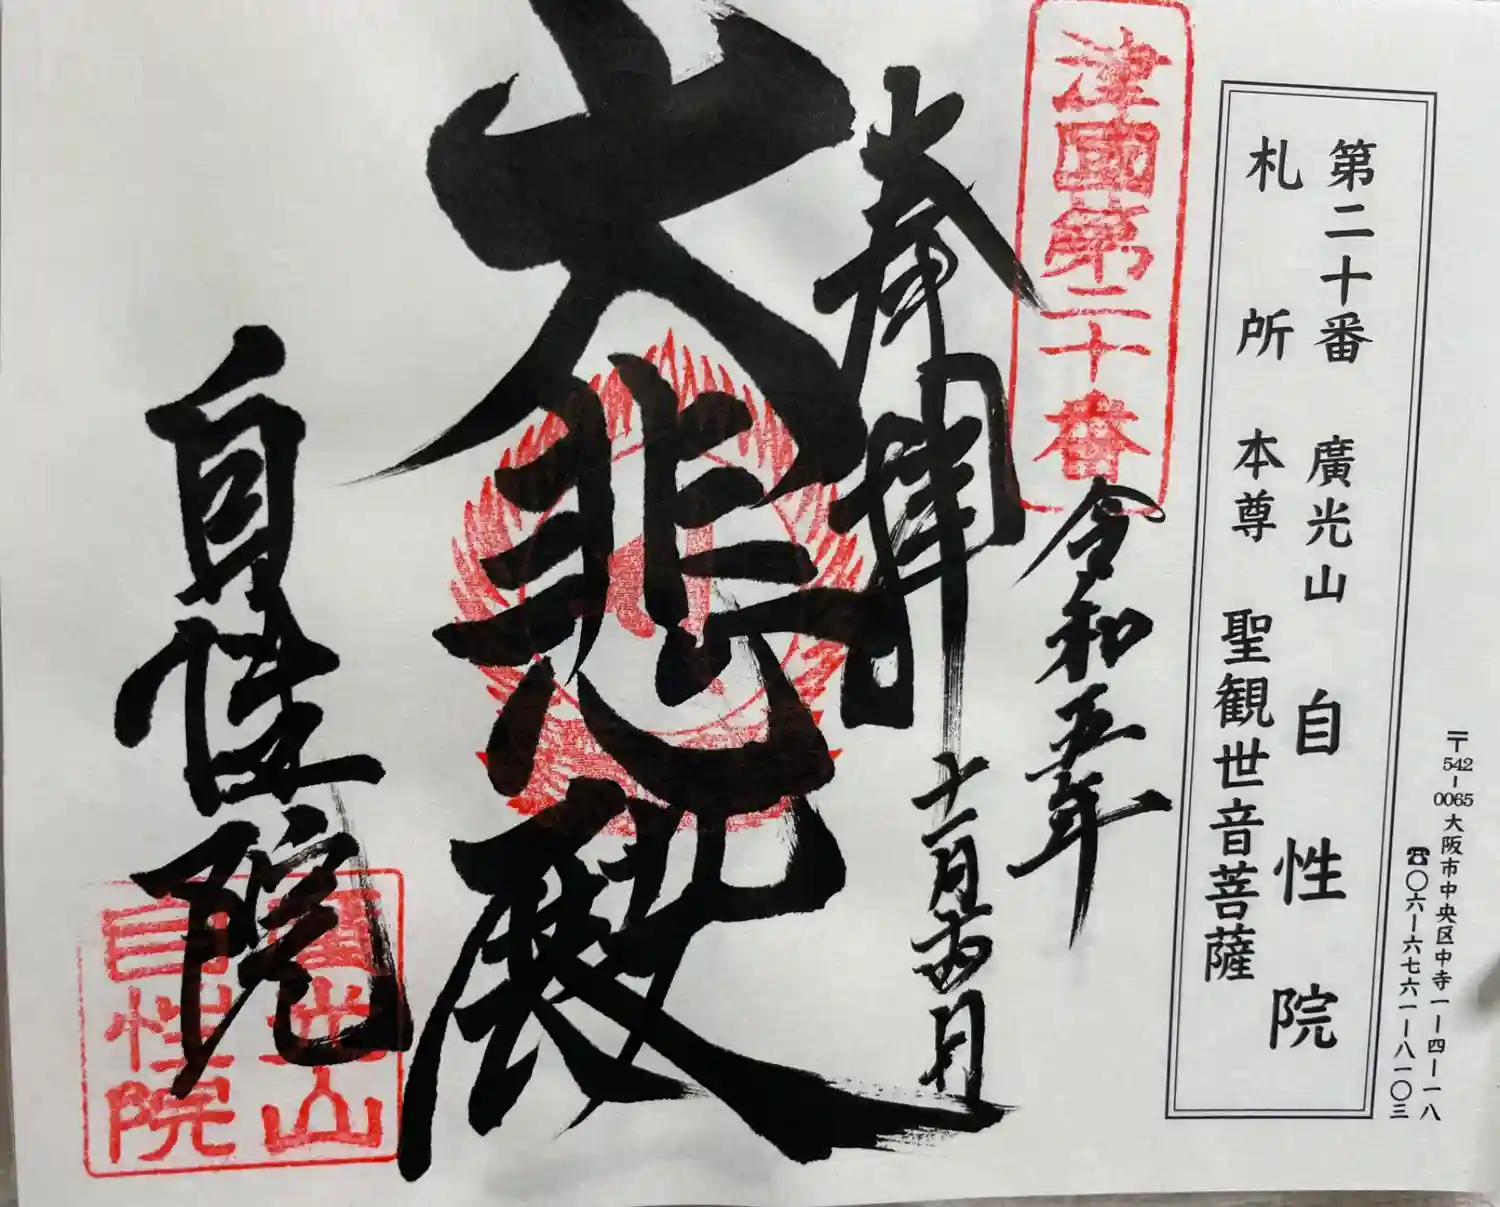 〒542-0065 大阪市中央区中寺一-四-一八
☎〇六-六七六一-八一〇三
第二十番 廣光山 自性院
札所 本尊 聖観世音菩薩
津國第二十番
奉拝
令和五年
十一月
大悲殿
自性院
廣光山
自性院